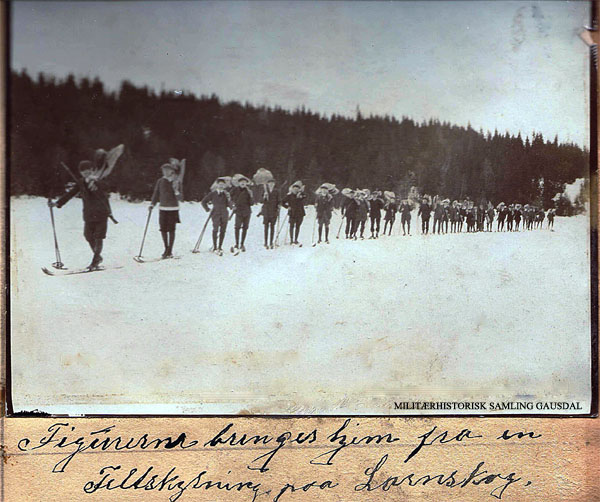 MILITÆRHISTORISK SAMLING GAUSDAL
Figurerne bringes hjem fra en
Feltskydning paa Lørenskog.